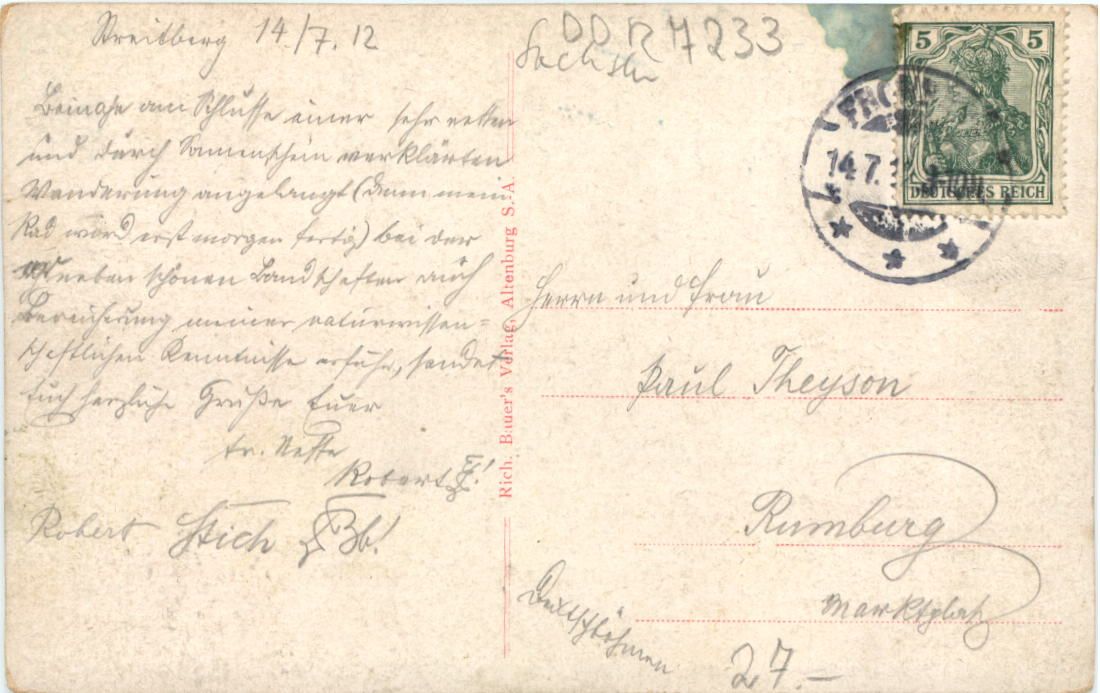 Streitberg 14/7.12
Beinahe am Schlusse einer sehr netten
und durch Sonnenschein verklärten
Wanderung angelangt (denn mein
Rad wird erst morgen fertig) bei der
neben schönen Landschaften auch
Bereicherung meiner naturwissen=
schaftlichen Kenntnisse erfuhr, sendet
Euch herzliche Grüße Euer
tr. Neffe
Robert
Robert Stich
Rich. Bauer's Verlag, Altenburg S.-A.
DDR 7233
Sachsen
5 5
DEUTSCHES REICH
14.7.
Herrn und Frau
Paul Theyson
Rumburg
Marktplatz
Deutschböhmen
27.-